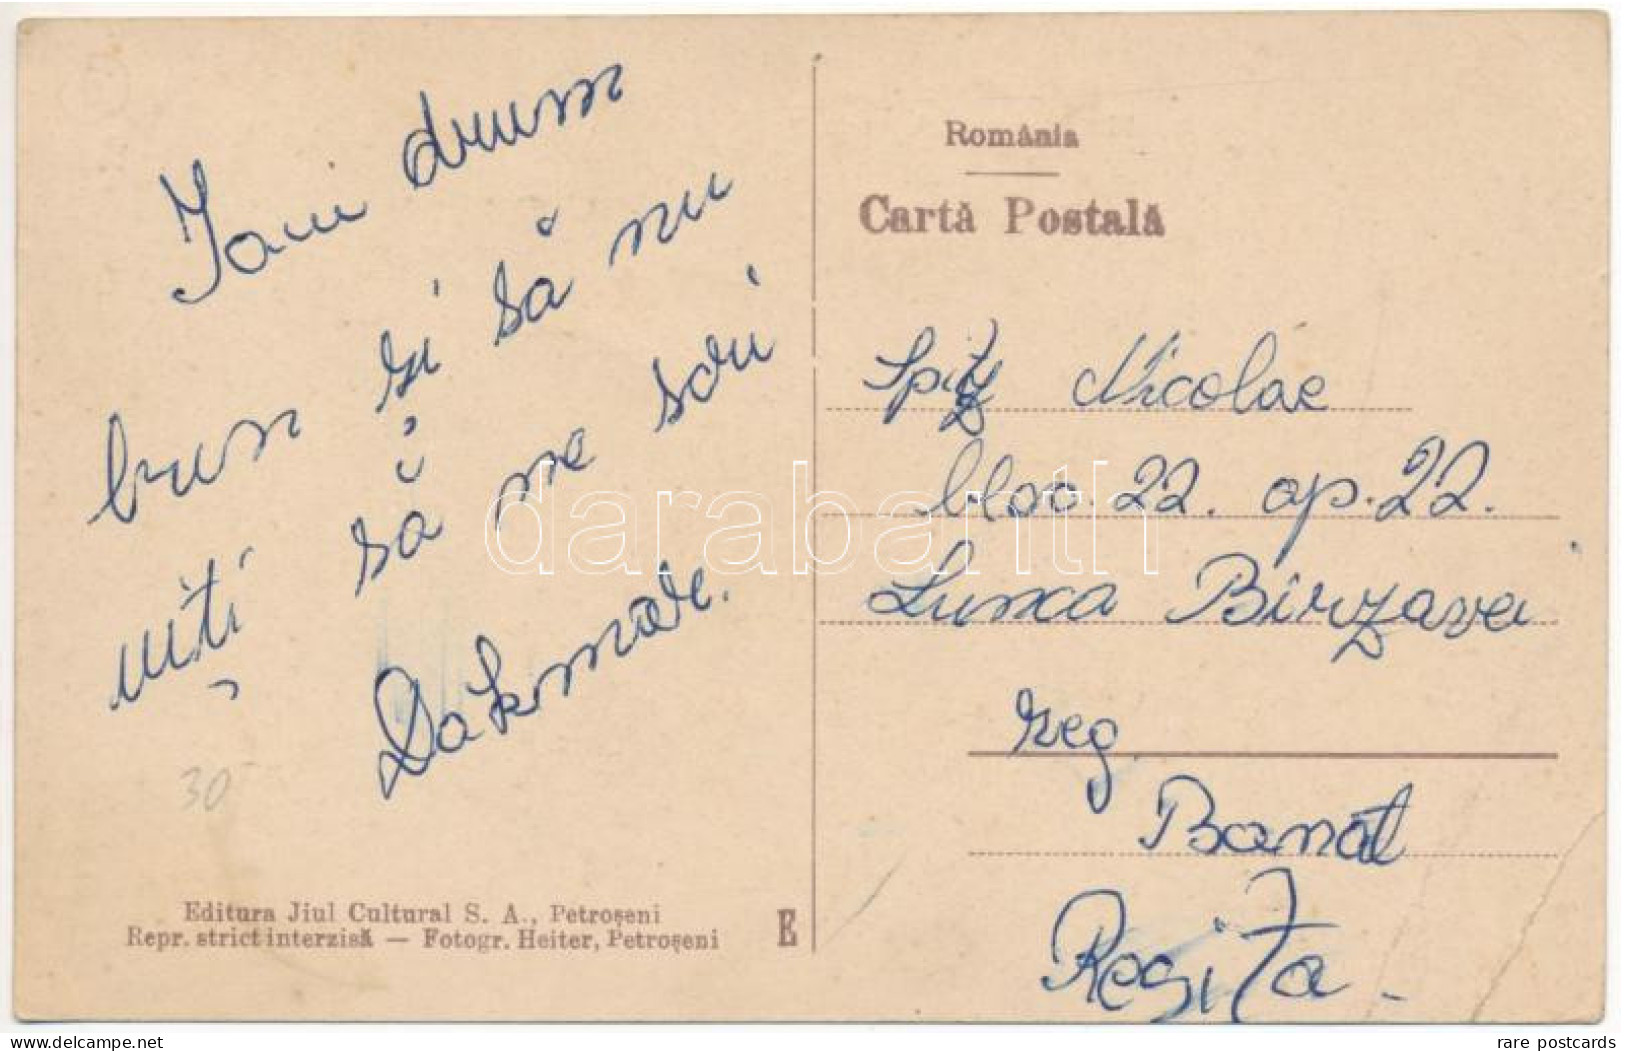 Iani drum
bun și să nu
uiți să me scrii
România
Cartă Postală
Spitz Nicolae
bloc. 22. ap. 22.
Lunca Bîrzava
reg.
Banat
Reșița.
30
Editura Jiul Cultural S. A., Petroșeni
Repr. strict interzisă — Fotogr. Heiter, Petroșeni
E
darabanth
delcampe.net
rare postcards